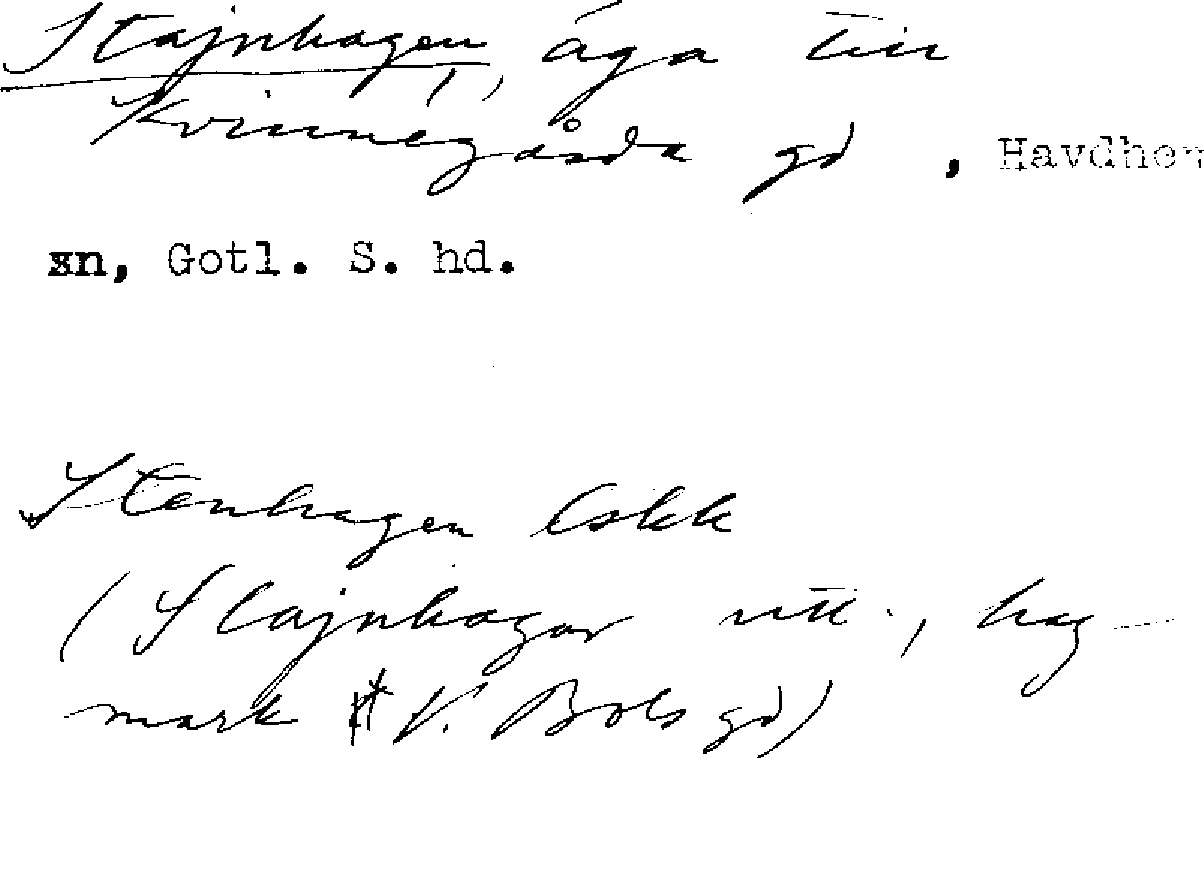 Stajnhagen, äga till
Kvinnegårda gd, Havdhem
sn, Gotl. S. hd.
Stenhagen Eskk
(Stajnhagar utt., hag-
mark t V. Bols gd)